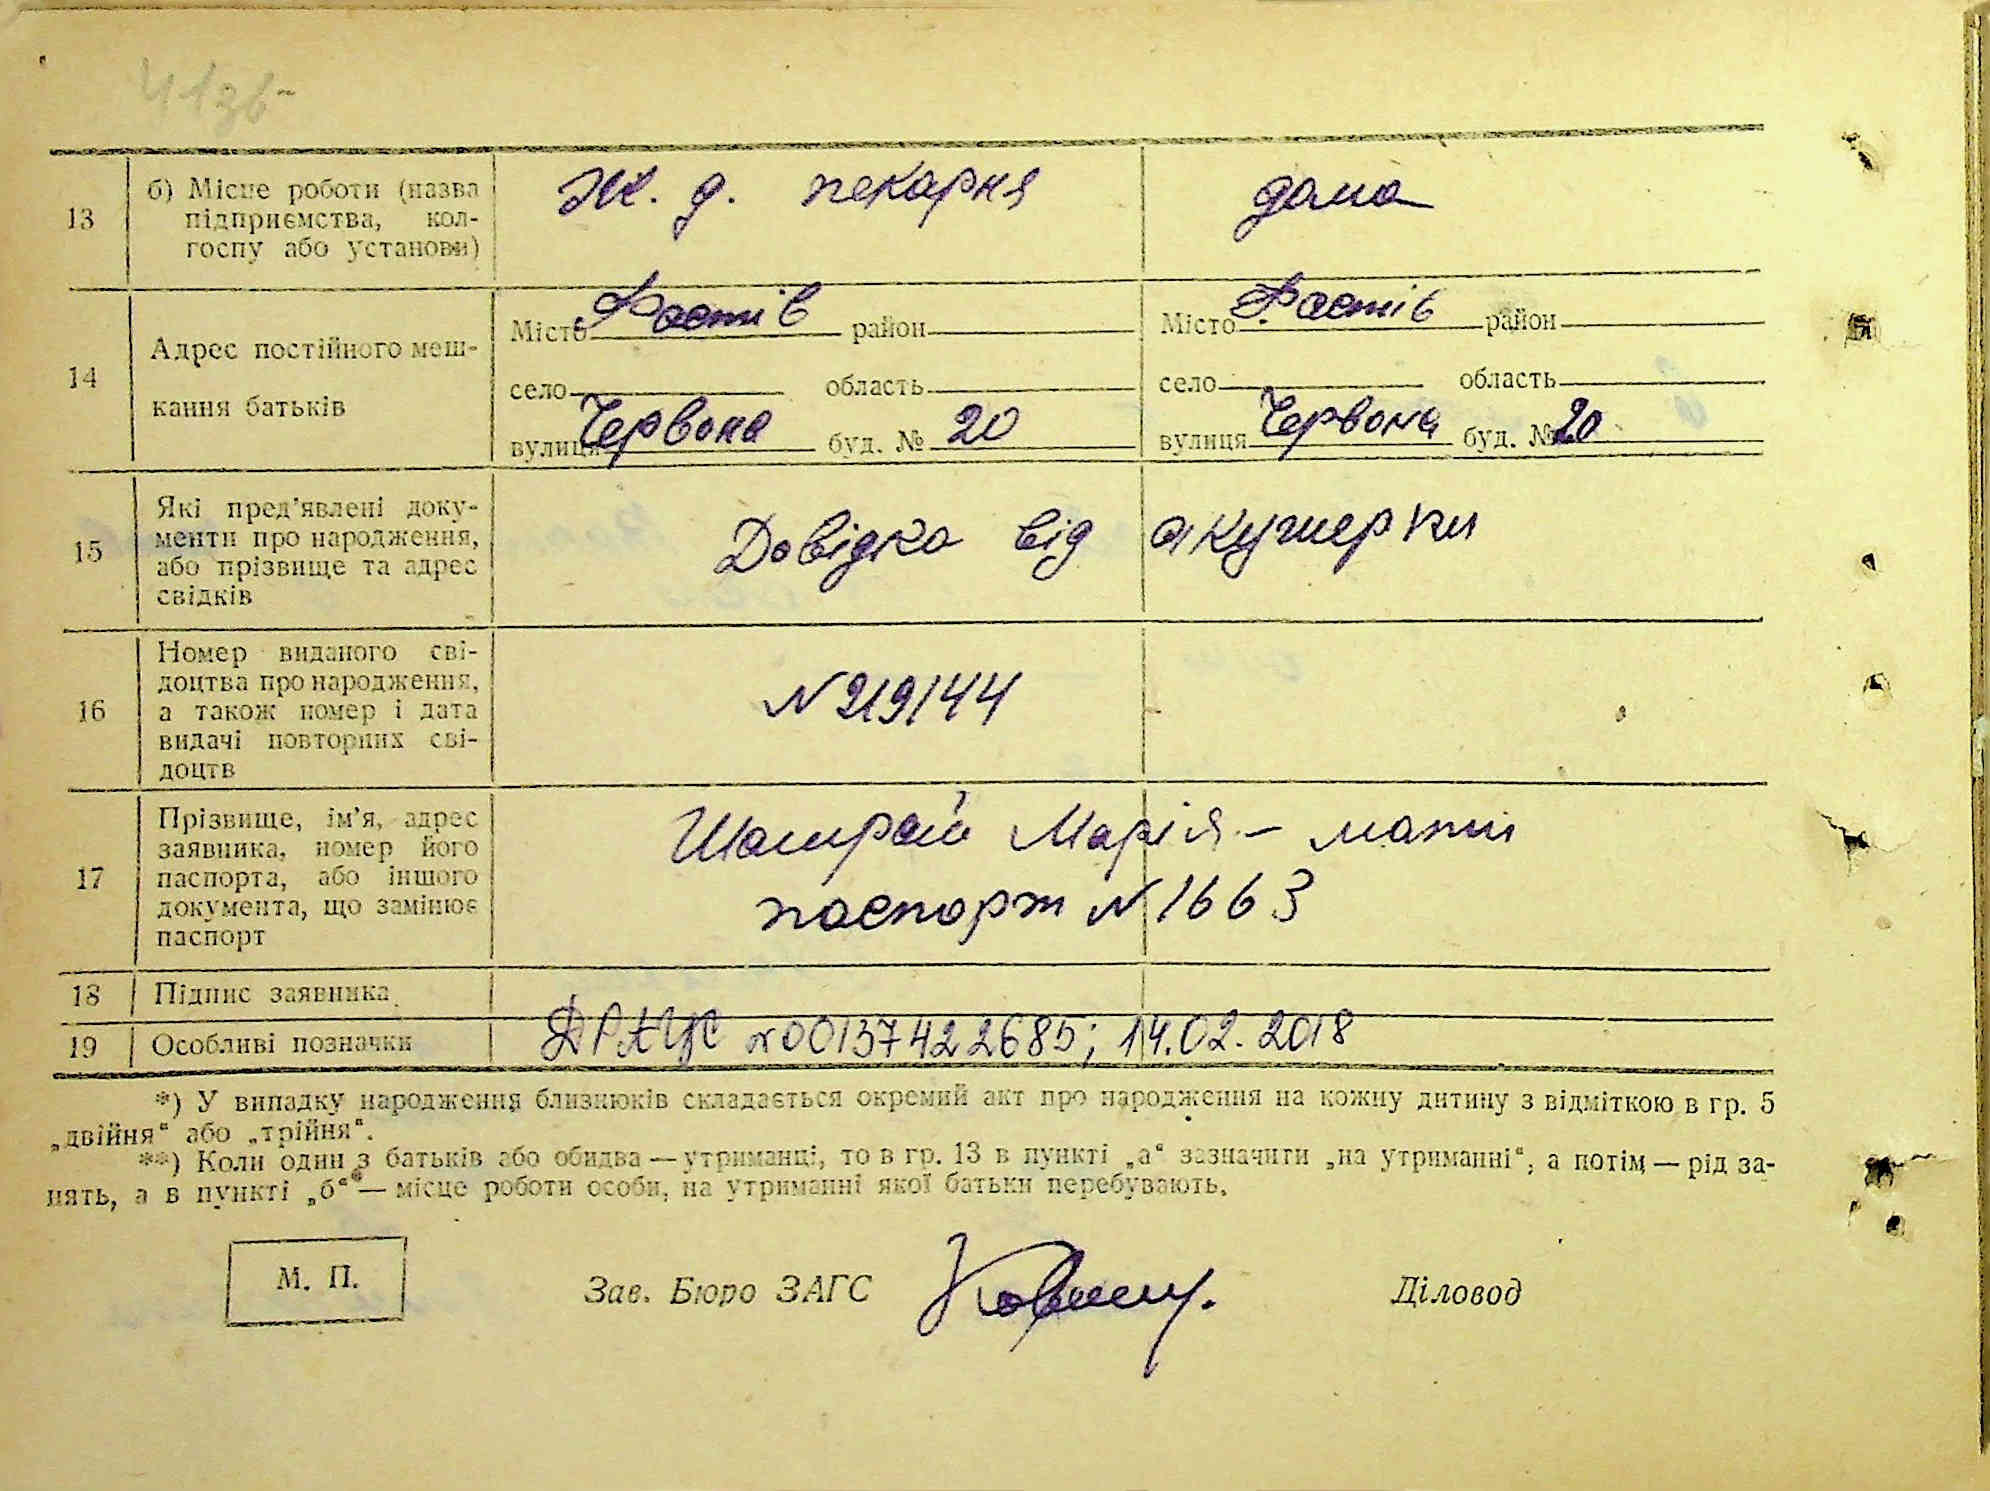 13 б) Місце роботи (назва Ж. д. пекарня дома
підприємства, кол-
госпу або установи)
14 Адрес постійного меш-
кання батьків
Місто Фастів район Місто Фастів район
село область село область
вулиця Червона буд. № 20 вулиця Червона буд. № 20
15 Які пред'явлені доку-
менти про народження,
або прізвище та адрес
свідків
Довідка від акушерки
16 Номер виданого сві-
доцтва про народження,
а також номер і дата
видачі повторних сві-
доцтв
N 219144
17 Прізвище, ім'я, адрес
заявника, номер його
паспорта, або іншого
документа, що замінює
паспорт
Шамрай Марія - мати
паспорт N 1663
18 Підпис заявника
19 Особливі позначки ДРАЦС N 00137422685; 14.02.2018
*) У випадку народження близнюків складається окремий акт про народження на кожну дитину з відміткою в гр. 5
„двійня“ або „трійня“.
**) Коли один з батьків або обидва — утриманці, то в гр. 13 в пункті „а“ зазначити „на утриманні“, а потім — рід за-
нять, а в пункті „б“ — місце роботи особи, на утриманні якої батьки перебувають.
М. П. Зав. Бюро ЗАГС Діловод